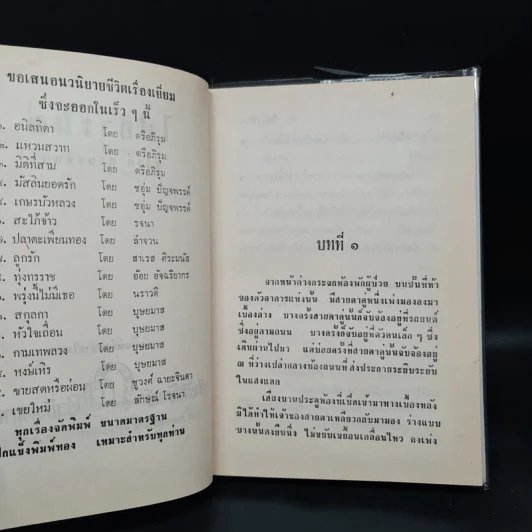 ขอเสนอนวนิยายชีวิตเรื่องเยี่ยม
ซึ่งจะออกในเร็ว ๆ นี้
๑. อนิลทิตา โดย ตรีอภิรุม
๒. แหวนสวาท โดย ตรีอภิรุม
๓. มิติที่สาม โดย ตรีอภิรุม
๔. มัสลินยอดรัก โดย ชอุ่ม ปัญจพรรค์
๕. เกษรบัวหลวง โดย ชอุ่ม ปัญจพรรค์
๖. สะใภ้จ้าว โดย รจนา
๗. ปลาตะเพียนทอง โดย ลำจวน
๘. ลูกรัก โดย สาเรส ศิระมนัส
๙. ทุ่งทรราช โดย อ้อย อัจฉริยากร
พรุ่งนี้ไม่มีเธอ โดย นราวดี
สกุลกา โดย บุษยมาส
หัวใจเถื่อน โดย บุษยมาส
กามเทพลวง โดย บุษยมาส
หงษ์เหิร โดย บุษยมาส
ขายสดหรือผ่อน โดย ชูวงศ์ ฉายะจินดา
เขยใหม่ โดย ลักษณ์ โรจนา
ทุกเรื่องจัดพิมพ์ ขนาดมาตรฐาน
ปกแข็งพิมพ์ทอง เหมาะสำหรับทุกท่าน
บทที่ ๑
จากหน้าต่างกระจกห้องพักผู้ป่วย บนชั้นที่ห้า
ของตัวอาคารแห่งนั้น มีสายตาคู่หนึ่งเพ่งมองลงมา
เบื้องล่าง บางครั้งสายตาคู่นั้นก็จับจ้องอยู่ที่รถยนต์
ซึ่งอยู่ลานถนน บางครั้งก็จับอยู่ที่ตัวคนเล็ก ๆ ซึ่ง
เดินผ่านไปมา แต่บ่อยครั้งที่สายตาคู่นั้นจับจ้องอยู่
ณ ที่ว่างเปล่ากลางท้องถนนที่ส่งประกายระยิบระยับ
ในแสงแดด
เสียงบานประตูห้องที่เปิดเข้ามาทางเบื้องหลัง
มิได้ทำให้เจ้าของสายตาเหลียวกลับมามอง ร่างแบบ
บางนั้นคงยืนนิ่ง ไม่ขยับเขยื้อนเคลื่อนไหว คงเพ่ง